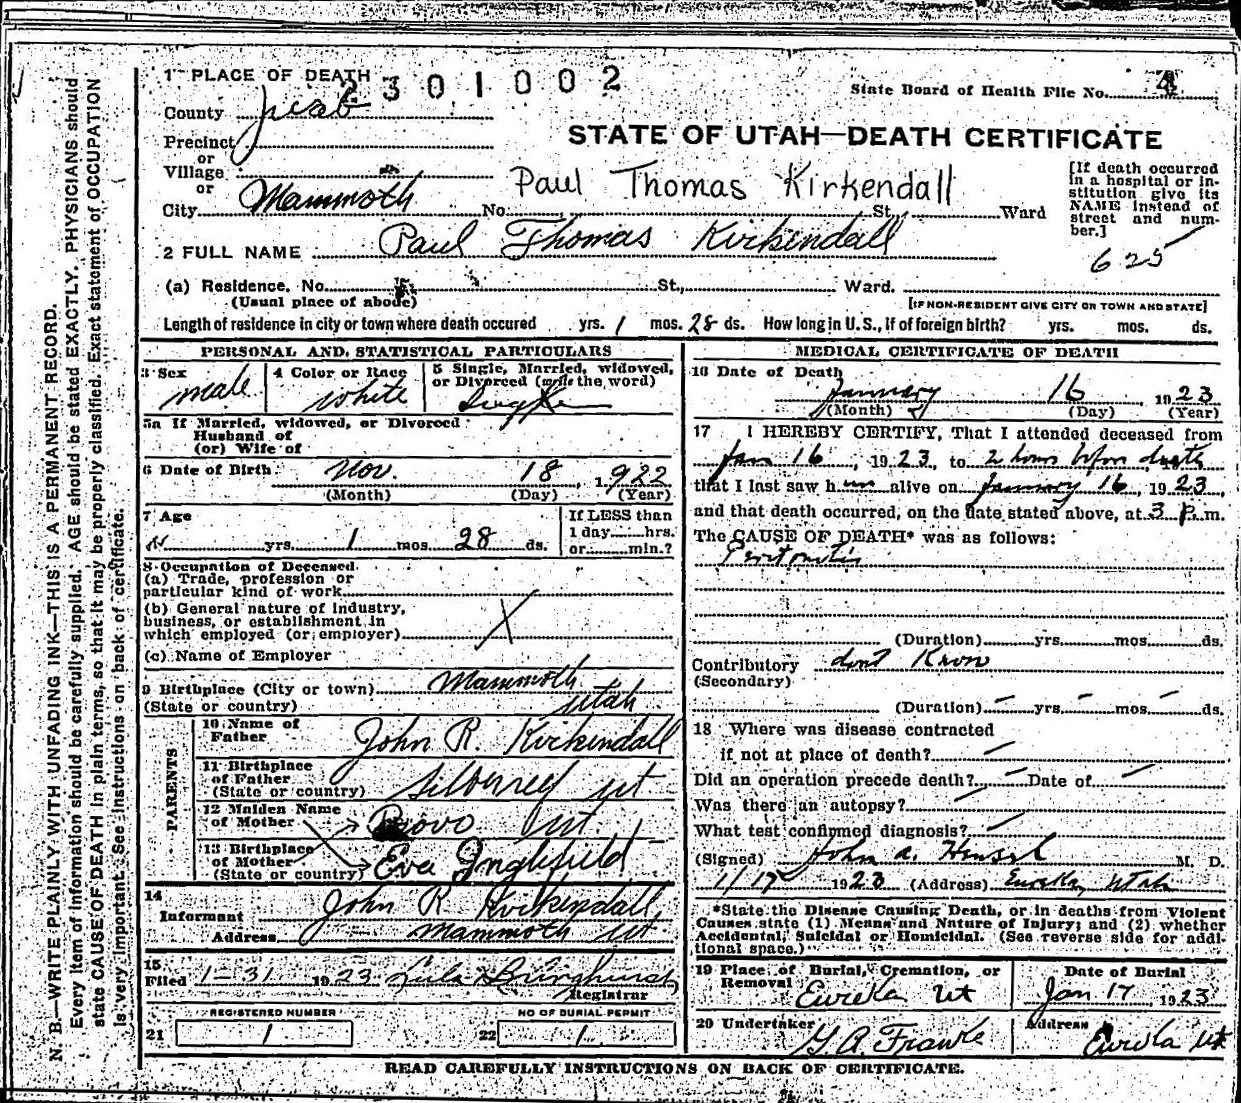 1 PLACE OF DEATH
2301002
State Board of Health File No. 4
County Juab
STATE OF UTAH—DEATH CERTIFICATE
Precinct
or
Village
or
City Mammoth No. St. Ward
Paul Thomas Kirkendall
[If death occurred in a hospital or institution give its NAME instead of street and number.]
2 FULL NAME Paul Thomas Kirkendall
625
(a) Residence. No. St., Ward.
(Usual place of abode)
[IF NON-RESIDENT GIVE CITY OR TOWN AND STATE]
Length of residence in city or town where death occured yrs. 1 mos. 28 ds. How long in U. S., if of foreign birth? yrs. mos. ds.
PERSONAL AND STATISTICAL PARTICULARS
3 Sex male
4 Color or Race white
5 Single, Married, widowed, or Divorced (write the word) Single
5a If Married, widowed, or Divorced
Husband of
(or) Wife of
6 Date of Birth Nov. 18, 1922
(Month) (Day) (Year)
7 Age
yrs. 1 mos. 28 ds.
If LESS than
1 day hrs.
or min.?
8 Occupation of Deceased
(a) Trade, profession or
particular kind of work
(b) General nature of industry,
business, or establishment in
which employed (or employer) X
(c) Name of Employer
9 Birthplace (City or town) Mammoth
(State or country) Utah
PARENTS
10 Name of Father John R. Kirkendall
11 Birthplace of Father
(State or country) Silverreef ut
12 Maiden Name of Mother Provo Ut.
13 Birthplace of Mother
(State or country) Eva Inglefield
14
Informant John R Kirkendall
Address Mammoth ut
15
Filed 1-31 1923 Lula Bringhurst
Registrar
REGISTERED NUMBER
21 1
NO OF BURIAL PERMIT
22 1
MEDICAL CERTIFICATE OF DEATH
16 Date of Death
January 16, 1923
(Month) (Day) (Year)
17 I HEREBY CERTIFY, That I attended deceased from
Jan 16, 1923, to 2 hours before death
that I last saw him alive on January 16, 1923,
and that death occurred, on the date stated above, at 3 P. m.
The CAUSE OF DEATH* was as follows:
Peritonitis
(Duration) yrs. mos. ds.
Contributory dont Know
(Secondary)
(Duration) — yrs. — mos. — ds.
18 Where was disease contracted
if not at place of death? —
Did an operation precede death? — Date of —
Was there an autopsy? —
What test confirmed diagnosis? —
(Signed) John A. Hensel M. D.
1/17 1923 (Address) Eureka, Utah
*State the Disease Causing Death, or in deaths from Violent
Causes state (1) Means and Nature of Injury; and (2) whether
Accidental, Suicidal or Homicidal. (See reverse side for additional space.)
19 Place of Burial, Cremation, or Removal Eureka Ut
Date of Burial
Jan 17 1923
20 Undertaker G. A. Franke
Address Eureka Ut
READ CAREFULLY INSTRUCTIONS ON BACK OF CERTIFICATE.
N. B.—WRITE PLAINLY WITH UNFADING INK—THIS IS A PERMANENT RECORD.
Every item of information should be carefully supplied. AGE should be stated EXACTLY. PHYSICIANS should
state CAUSE OF DEATH in plain terms, so that it may be properly classified. Exact statement of OCCUPATION
is very important. See instructions on back of certificate.